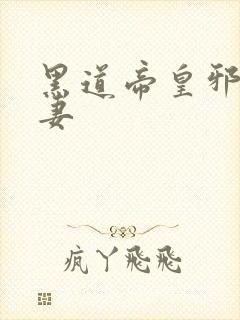 黑道帝皇邪
妻
疯丫飛飛